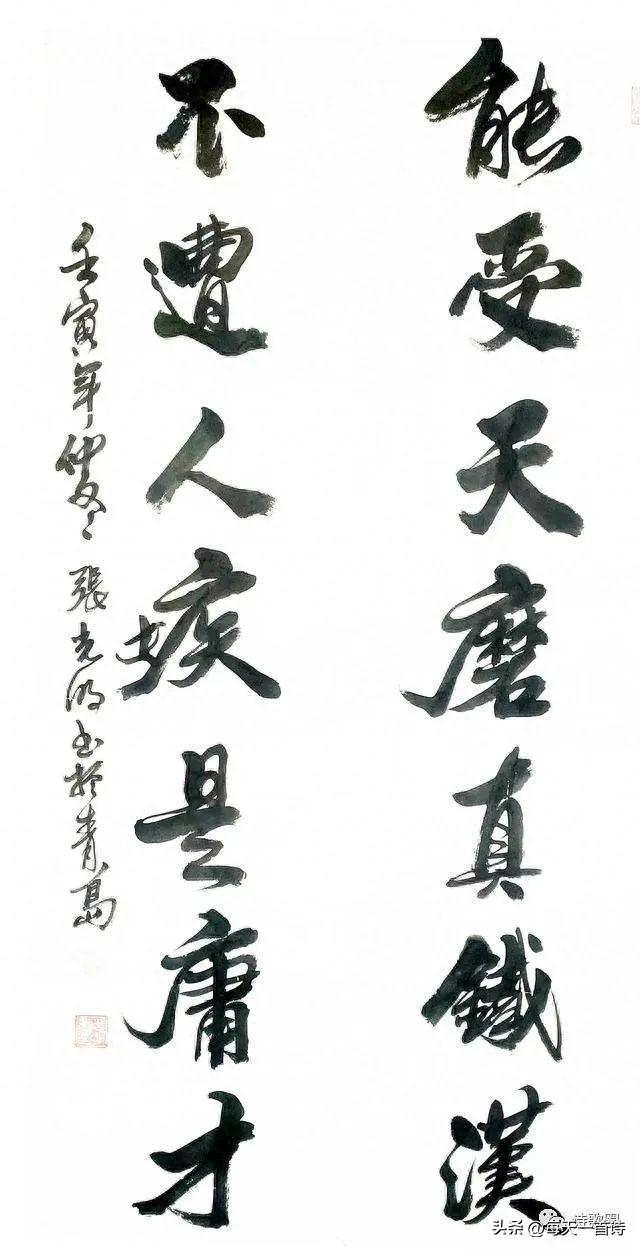 能受天磨真鐵漢
不遭人嫉是庸才
壬寅年仲夏 張光明書於青島
头条 @每天一首诗